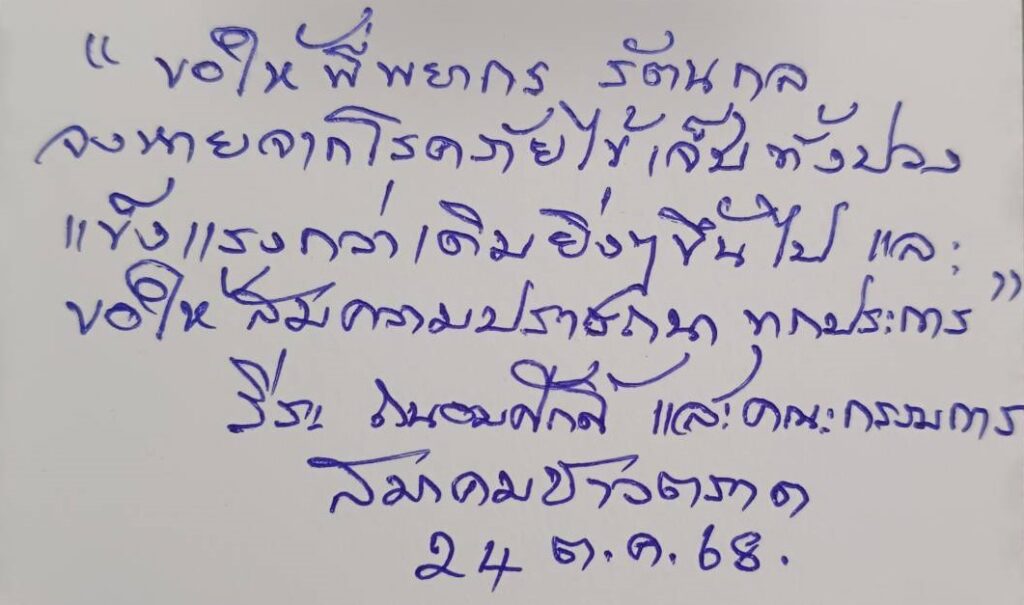 “ ขอให้พี่พยากร รัตนกุล
จงหายจากโรคภัยไข้เจ็บทั้งปวง
แข็งแรงกว่าเดิมยิ่งๆขึ้นไป และ
ขอให้สมความปรารถนา ทุกประการ ”
ธีระ ถนอมศักดิ์ และคณะกรรมการ
สมาคมชาวตราด
24 ต.ค. 68.